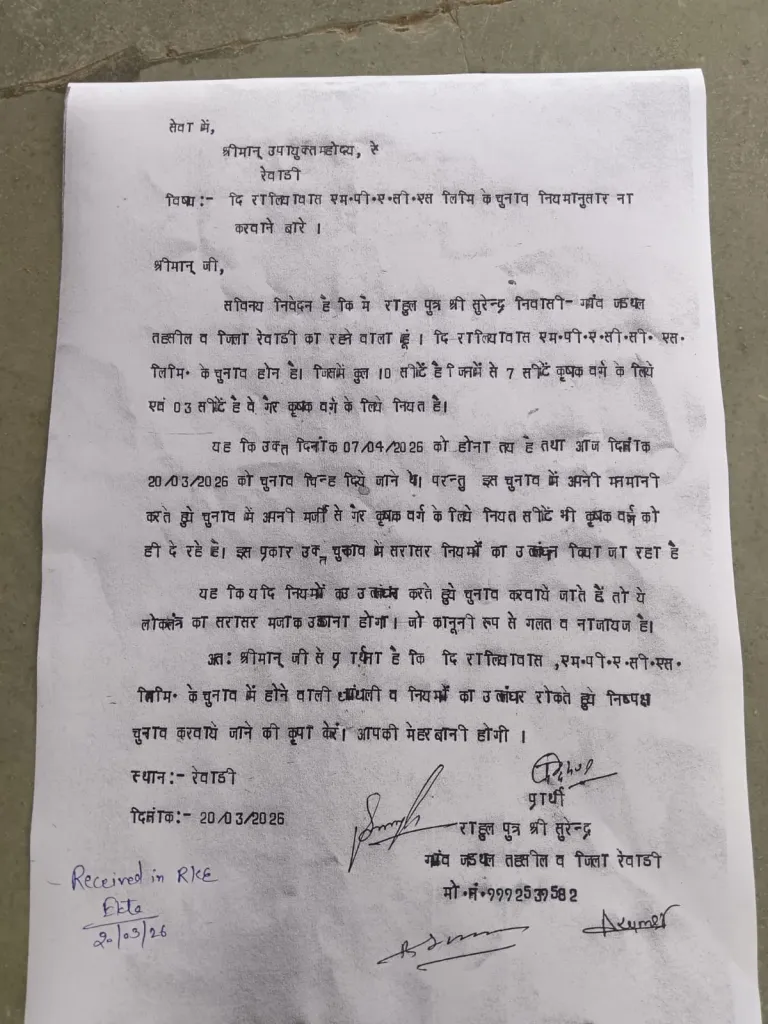 सेवा में,
श्रीमान् उपायुक्त महोदय, रे
रेवाडी
विषय:- दि रालियावास एम•पी•ए•सी•एस लिमि के चुनाव नियमानुसार ना
करवाने बारे ।
श्रीमान् जी,
सविनय निवेदन है कि मै राहुल पुत्र श्री सुरेन्द्र निवासी- गांव जडथल
तहसील व जिला रेवाडी का रहने वाला हूं । दि रालियावास एम•पी•ए•सी•सी• एस•
लिमि• के चुनाव होन है। जिसमें कुल 10 सीटें है जिनमें से 7 सीटें कृषक वर्ग के लिये
एवं 03 सीटें है वे गेर कृषक वर्ग के लिये नियत है।
यह कि उक्त दिनांक 07/04/2026 को होना तय है तथा आज दिनांक
20/03/2026 को चुनाव चिन्ह दिये जाने थे। परन्तु इस चुनाव में अपनी मनमानी
करते हुये चुनाव में अपनी मर्जी से गेर कृषक वर्ग के लिये नियत सीटें भी कृषक वर्ग को
ही दे रहे है। इस प्रकार उक्त चुनाव में सरासर नियमों का उलंघन किया जा रहा है
यह कि यदि नियमों का उलंघन करते हुये चुनाव करवाये जाते हैं तो ये
लोकतंत्र का सरासर मजाक उडाना होगा। जो कानूनी रूप से गलत व नाजायज है।
अत: श्रीमान् जी से प्रार्थना है कि दि रालियावास ,एम•पी•ए•सी•एस•
लिमि• के चुनाव में होने वाली धांधली व नियमों का उलंघन रोकते हुये निष्पक्ष
चुनाव करवाये जाने की कृपा करें। आपकी मेहरबानी होगी ।
स्थान:- रेवाडी
दिनांक:- 20/03/2026
Rahul
प्रार्थी
राहुल पुत्र श्री सुरेन्द्र
गांव जडथल तहसील व जिला रेवाडी
मो•नं•9992539582
Received in RKE
Ekta
20/03/26